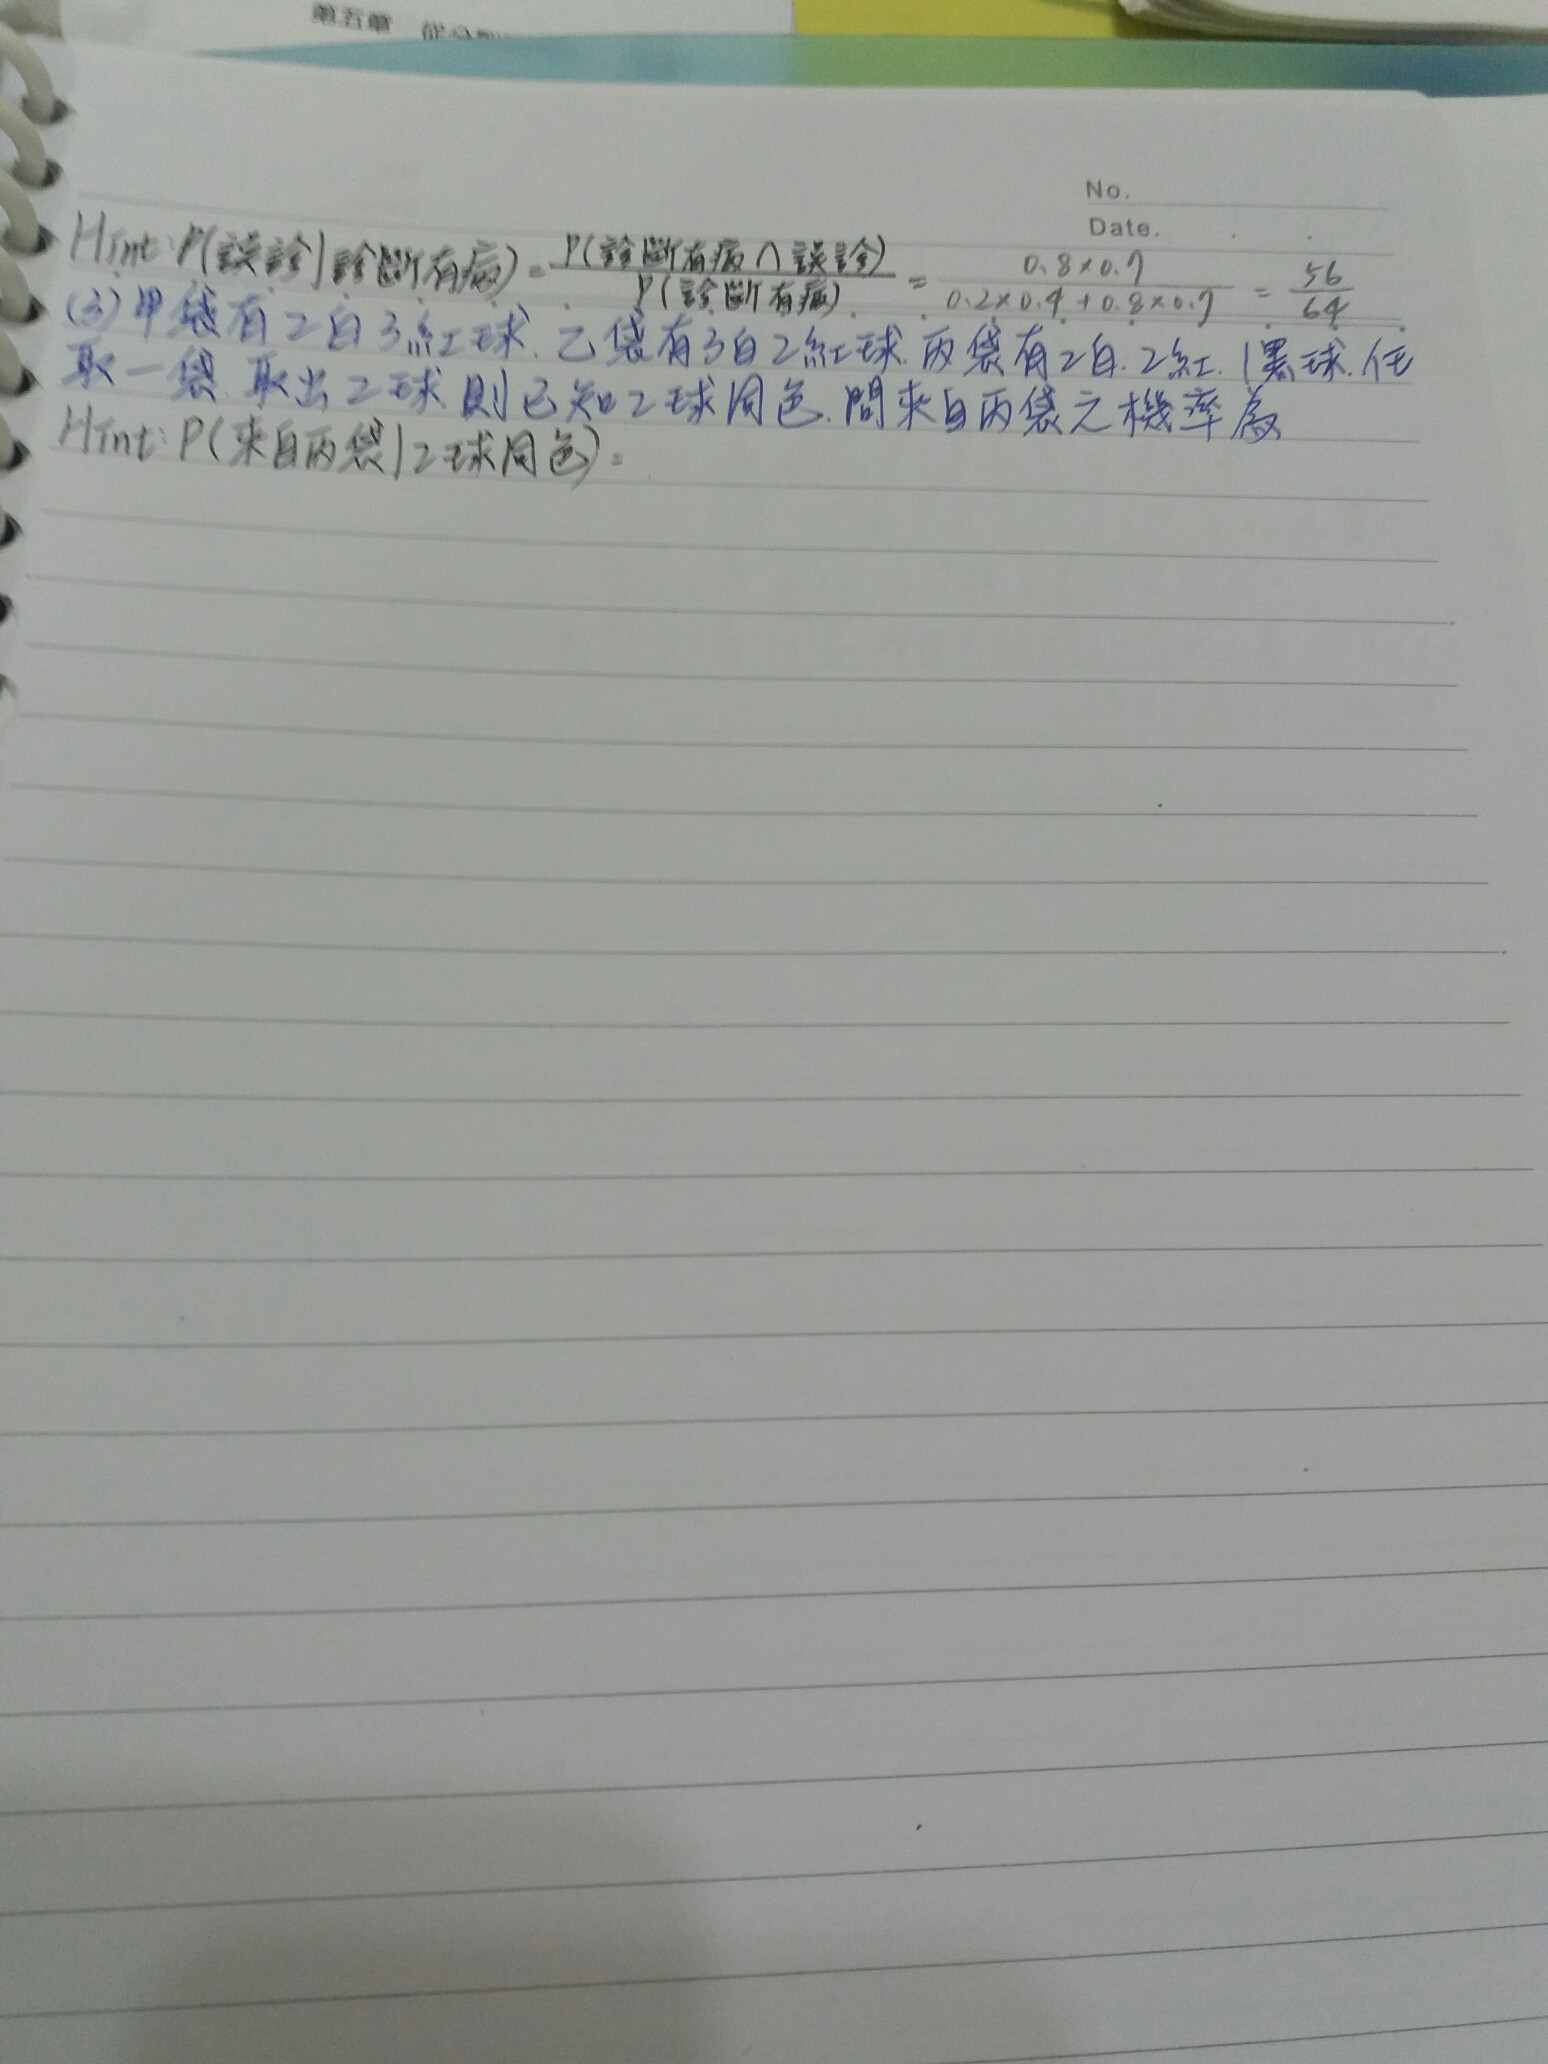 第五章
No.
Date.
Hint: P(誤診|診斷有病) = P(診斷有病∩誤診) / P(診斷有病) = 0.8×0.7 / 0.2×0.4+0.8×0.7 = 56/64
(3)甲袋有2白3紅球.乙袋有3白2紅球.丙袋有2白.2紅.1黑球.任
取一袋.取出2球.則已知2球同色.問來自丙袋之機率為
Hint: P(來自丙袋|2球同色) =